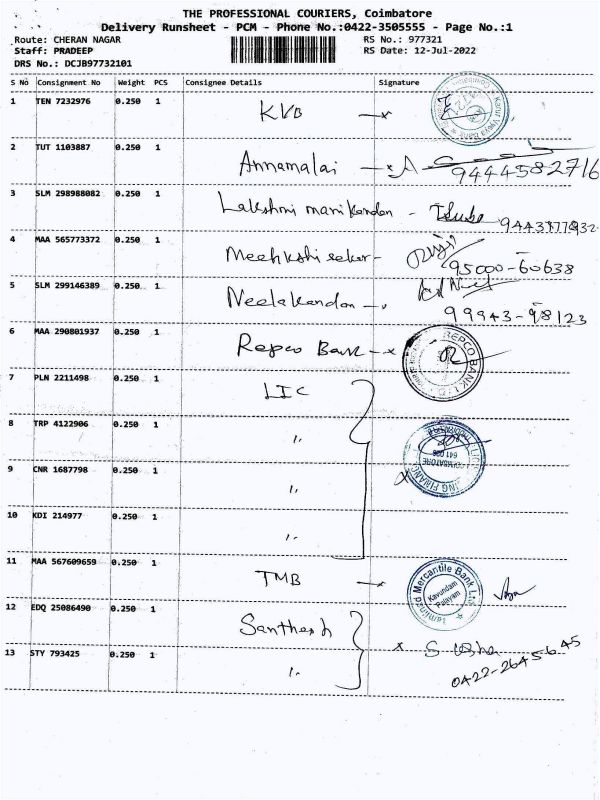 THE PROFESSIONAL COURIERS, Coimbatore
Delivery Runsheet - PCM - Phone No.:0422-3505555 - Page No.:1
Route: CHERAN NAGAR RS No.: 977321
Staff: PRADEEP RS Date: 12-Jul-2022
DRS No.: DCJB97732101
S No Consignment No Weight PCS Consignee Details Signature
1 TEN 7232976 0.250 1 KVB
2 TUT 1103887 0.250 1 Annamalai 9444582716
3 SLM 298988082 0.250 1 Lakshmi manikandan -
4 MAA 565773372 0.250 1 Meenkshi seker - 95000-60638
5 SLM 299146389 0.250 1 Neelakandan - 99943-98123
6 MAA 290801937 0.250 1 Repco Bank REPCO BANK LTD
7 PLN 2211498 0.250 1 LIC
8 TRP 4122906 0.250 1 "
9 CNR 1687798 0.250 1 " LIC HOUSING FINANCE COIMBATORE
10 KDI 214977 0.250 1 "
11 MAA 567609659 0.250 1 TMB Tamilnad Mercantile Bank Ltd Kavundam Palayam
12 EDQ 25086490 0.250 1 Santhosh
13 STY 793425 0.250 1 " 0422-2645645